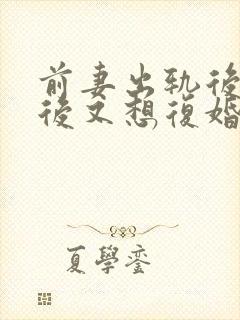 前妻出轨後
後又想復婚
夏學銮